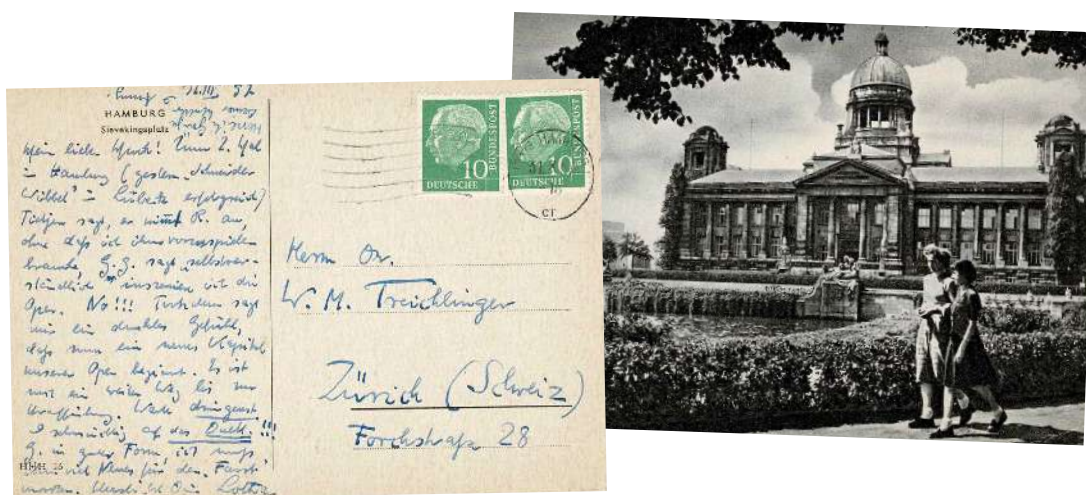 57
HAMBURG
Sievekingsplatz
Mein lieber! Zum 2. Mal
in Hamburg (gestern „Schneider
Wibbel" in Lübeck erfolgreich)
Tietjen sagt, er nimmt R. an,
ohne daß ich ihm vorzuspielen
brauche, G.G. sagt „selbstver-
ständlich" inszeniere ich die
Oper. No!!! Trotzdem sagt
mir ein dunkles Gefühl,
daß nun ein neues Kapitel
unserer Oper beginnt. Es ist
noch ein weiter Weg bis zur
Uraufführung. Warte dringenst
sehnsüchtig auf das Duett.!!!
G. in guter Form, ist muß
viel Neues für den „Faust"
machen. Dein Lothar
10
DEUTSCHE BUNDESPOST
10
DEUTSCHE BUNDESPOST
Herrn Dr.
W. M. Treichlinger
Zürich (Schweiz)
Forchstraße 28